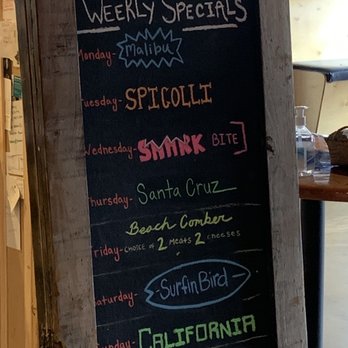 WEEKLY SPECIALS
Monday- Malibu
Tuesday- SPICOLLI
Wednesday- SHARK BITE
Thursday- Santa Cruz
Beach Comber
Friday- CHOICE OF 2 MEATS 2 CHEESES
Saturday- Surfin Bird
Sunday- CALIFORNIA